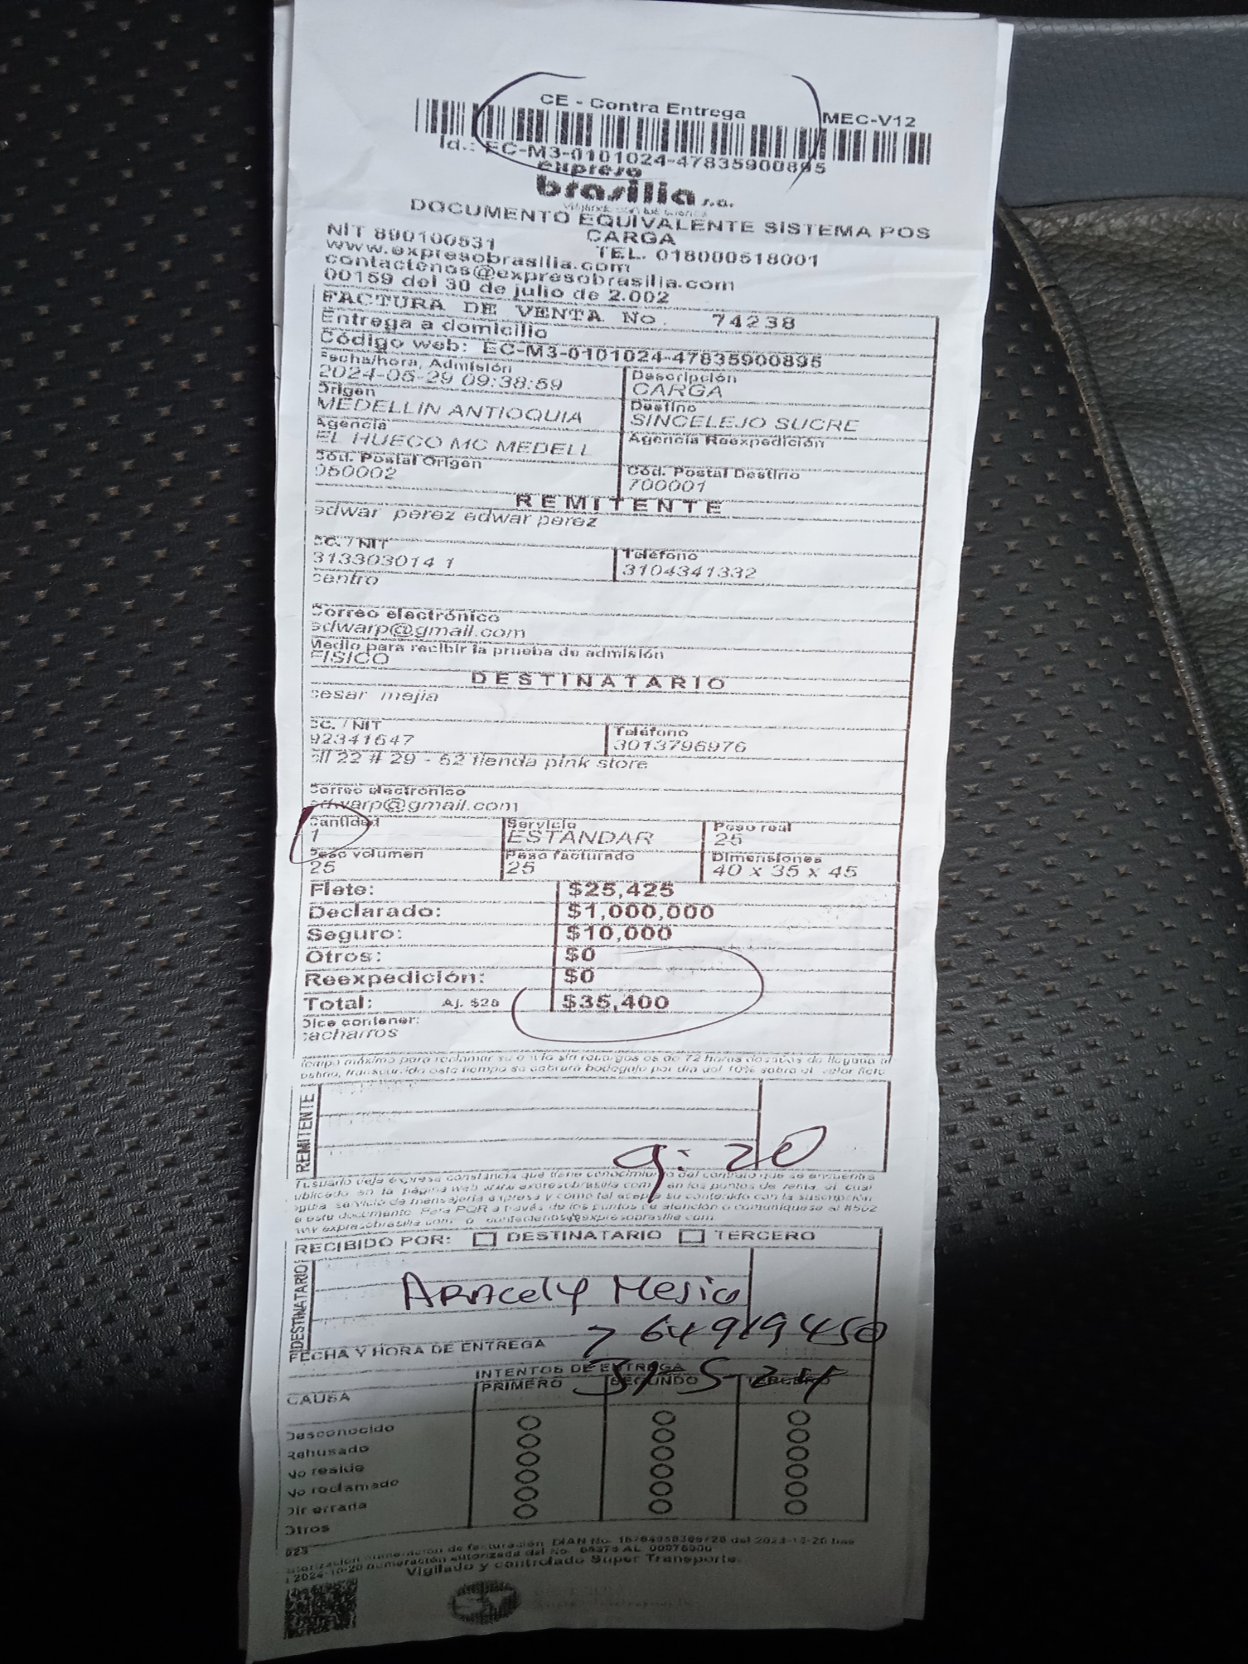 CE - Contra Entrega
MEC-V12
Id.: EC-M3-0101024-47835900895
expreso
brasilia s.a.
DOCUMENTO EQUIVALENTE SISTEMA POS
CARGA
NIT 890100531 TEL. 018000518001
www.expresobrasilia.com
contactenos@expresobrasilia.com
00159 del 30 de julio de 2.002
FACTURA DE VENTA No. 74238
Entrega a domicilio
Código web: EC-M3-0101024-47835900895
Fecha/hora, Admisión Descripción
2024-05-29 09:38:59 CARGA
Origen Destino
MEDELLIN ANTIOQUIA SINCELEJO SUCRE
Agencia Agencia Reexpedición
EL HUECO MC MEDELL
Cód. Postal Origen Cód. Postal Destino
050002 700001
REMITENTE
edwar perez edwar perez
CC. / NIT Teléfono
313303014 1 3104341332
centro
Correo electrónico
edwarp@gmail.com
Medio para recibir la prueba de admisión
FISICO
DESTINATARIO
cesar mejia
CC. / NIT Teléfono
92341647 3013796976
cll 22 # 29 - 62 tienda pink store
Correo electrónico
edwarp@gmail.com
Cantidad Servicio Peso real
1 ESTANDAR 25
Peso volumen Peso facturado Dimensiones
25 25 40 x 35 x 45
Flete: $25,425
Declarado: $1,000,000
Seguro: $10,000
Otros: $0
Reexpedición: $0
Total: Aj. $25 $35,400
Dice contener:
cacharros
REMITENTE
9:20
RECIBIDO POR: DESTINATARIO TERCERO
DESTINATARIO
Aracely Mejia
FECHA Y HORA DE ENTREGA 7 64919450
INTENTOS DE ENTREGA
31-5-24
CAUSA PRIMERO SEGUNDO TERCERO
Desconocido
Rehusado
No reside
No reclamado
Dir errada
Otros
Vigilado y controlado Super Transporte.